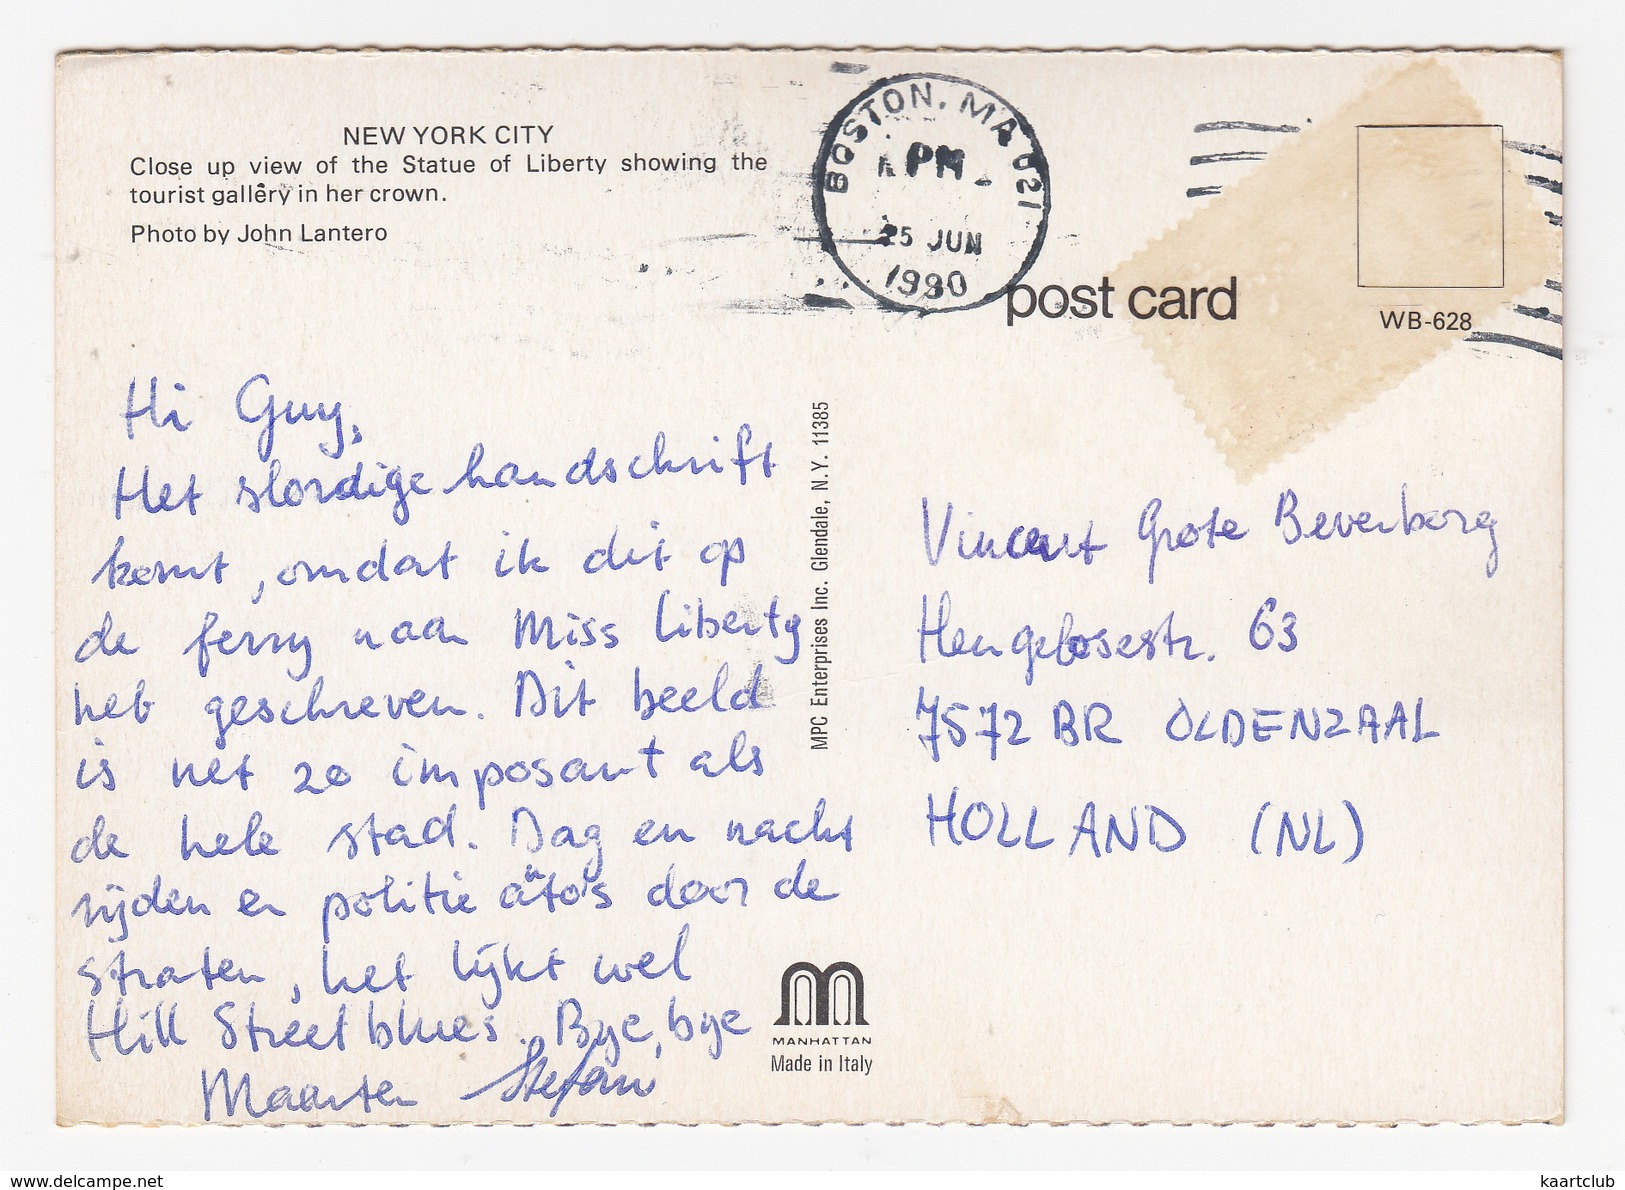 NEW YORK CITY
Close up view of the Statue of Liberty showing the
tourist gallery in her crown.
Photo by John Lantero
BOSTON, MA 021
PM
25 JUN
1990
post card
WB-628
Hi Guy,
Het slordige handschrift
komt, omdat ik dit op
de ferry naar Miss Liberty
heb geschreven. Dit beeld
is net zo imposant als
de hele stad. Dag en nacht
rijden er politie auto's door de
straten, het lijkt wel
Hill Street blues. Bye, bye
Maarten Stefan
MPC Enterprises Inc. Glendale, N.Y. 11385
Vincent Grote Beverborg
Hengelosestr. 63
7572 BR OLDENZAAL
HOLLAND (NL)
MANHATTAN
Made in Italy
www.delcampe.net
kaartclub